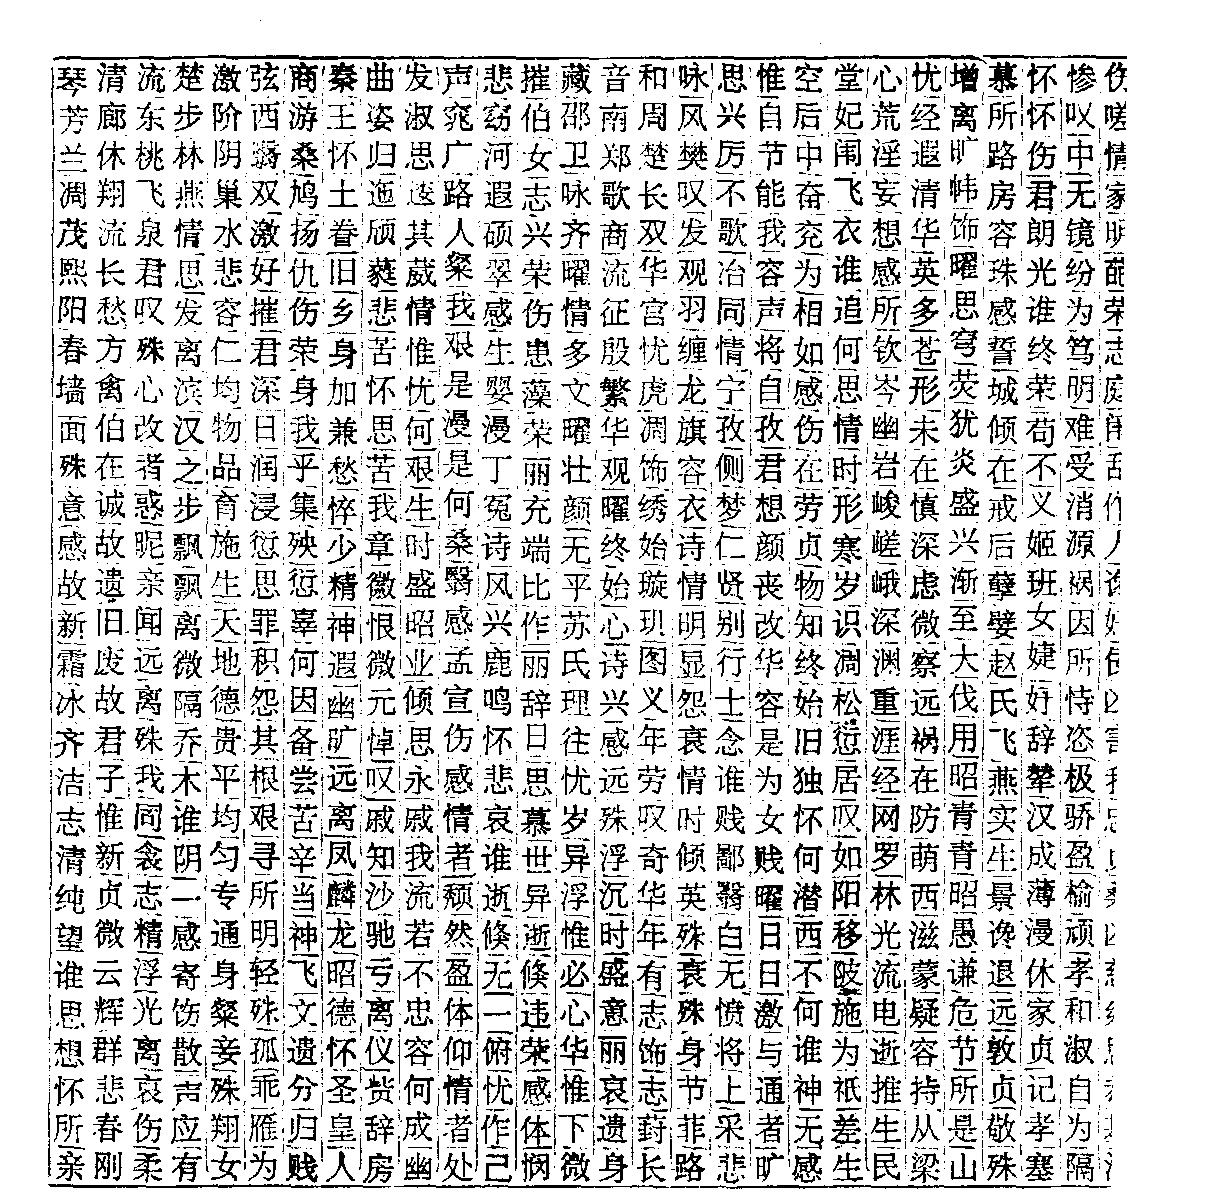 琴清流楚激弦商秦曲发声悲摧藏音和咏思惟空堂心忧增慕怀惨伤
芳廊东步阶西游王姿淑窕窈伯邵南周风兴自后妃荒经离所怀叹嗟
兰休桃林阴翳桑怀归思广河女卫郑楚樊厉节中闱淫遐旷路伤中情
凋翔飞燕巢双鸠土迤逶路遐志咏歌长叹不能奋飞妄清帏房君无家
茂流泉情水激扬眷颀其人硕兴齐商双发歌我兖衣想华饰容朗镜明
熙长君思悲好仇旧蕤葳粲翠荣曜流华观冶容为谁感英曜珠光纷葩
阳愁叹发容摧伤乡悲情我感伤情征宫羽同声相追所多思感谁为荣
春方殊离仁君荣身苦惟艰生患多殷忧缠情将如何钦苍穹誓终笃志
墙禽心滨均深身加怀忧是婴藻文繁虎龙宁自感思岑形荧城荣明庭
面伯改汉物日我兼思何漫漫荣曜华凋旗孜孜伤情幽未犹倾苟难闱
殊在者之品润乎愁苦艰是丁丽壮观饰容侧君在时岩在炎在不受乱
意诚惑步育浸集悴我生何冤充颜曜绣衣梦想劳形峻慎盛戒义消作
感故昵飘施愆殃少章时桑诗端无终始诗仁颜贞寒嵯深兴后姬源人
故遗亲飘生思愆精徽盛翳风比平始璇情贤丧物岁峨虑渐孽班祸谗
新旧闻离天罪辜神恨昭感兴作苏心玑明别改知识深微至嬖女因奸
霜废远微地积何遐微业孟鹿丽氏诗图显行华终凋渊察大赵婕所佞
冰故离隔德怨因幽元倾宣鸣辞理兴义怨士容始松重远伐氏好恃凶
齐君殊乔贵其备旷悼思伤怀日往感年衰念是旧愆涯祸用飞辞恣害
洁子我木平根尝远叹永感悲思忧远劳情谁为独居经在昭燕辇极我
志惟同谁均艰苦离戚戚情哀慕岁殊叹时贱女怀叹网防青实汉骄忠
清新衾阴匀寻辛凤知我者谁世异浮奇倾鄙贱何如罗萌青生成盈贞
纯贞志一专所当麟沙流颓逝异浮沉华英翳曜潜阳林西昭景薄榆桑
望微精感通明神龙驰若然倏逝惟时年殊白日西移光滋愚谗漫顽凶
谁云浮寄身轻飞昭亏不盈无倏必盛有衰无日不陂流蒙谦退休孝慈
思辉光饬粲殊文德离忠体一违心意志殊愤激何施电疑危远家和
想群离散妾孤遗怀仪容仰俯荣华丽饰身将与谁为逝容节敦贞淑
怀悲哀声殊乖分圣赀何情忧感惟哀志节上通神祇推持所贞记自
所春伤应翔雁归皇辞成者作体下遗葑菲采者无差生从是敬孝为
亲刚柔有女为贱人房幽处己悯微身长路悲旷感生民梁山殊塞隔